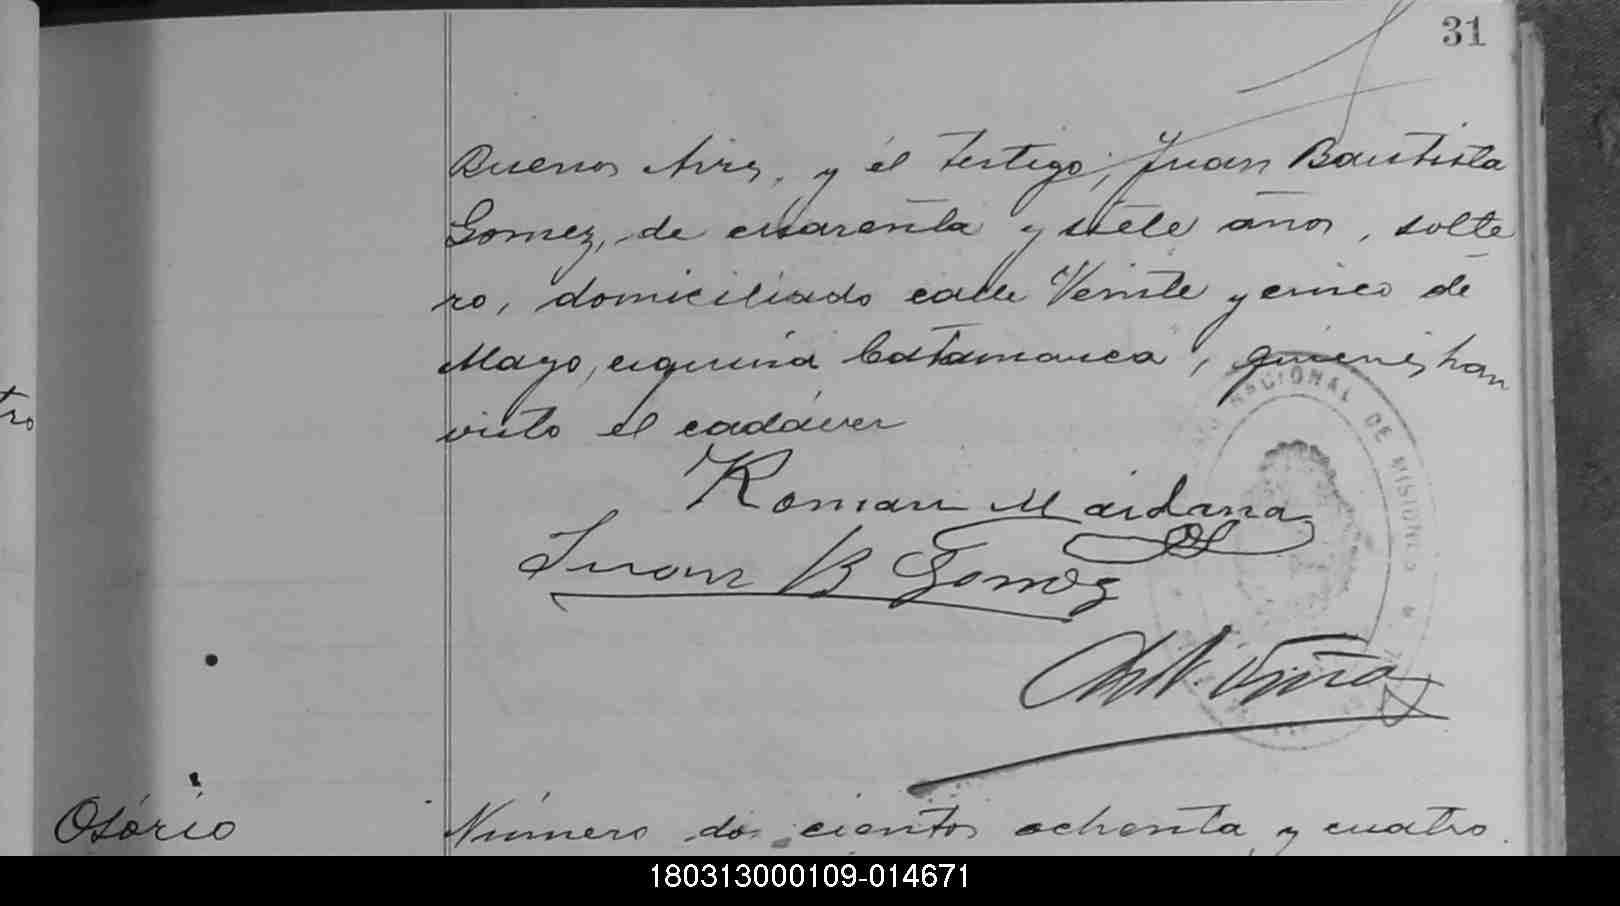 31
Buenos Aires, y el testigo, Juan Bautista
Gomez, de cuarenta y siete años, solte
ro, domiciliado calle Veinte y cinco de
Mayo, esquina Catamarca, quienes han
visto el cadáver
tro
NACIONAL DE MISIONES
Roman Maidana
Juan B Gomez
Osório
Número dos cientos ochenta y cuatro.
180313000109-014671